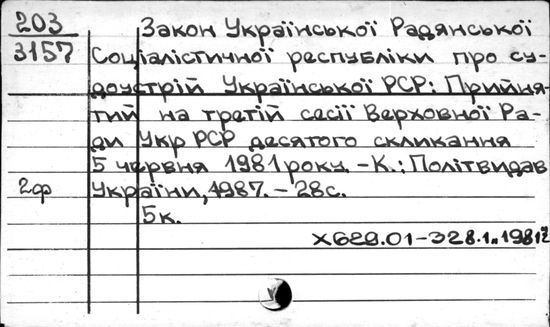 203
3157
Закон Української Радянської
Соціалістичної республіки про су-
доустрій Української РСР: Прийня-
тий на третій сесії Верховної Ра-
ди Укр РСР десятого скликання
5 червня 1981 року. - К.: Політвидав
2ф
України, 1987. - 28с.
5к.
х629.01-328.1
1981